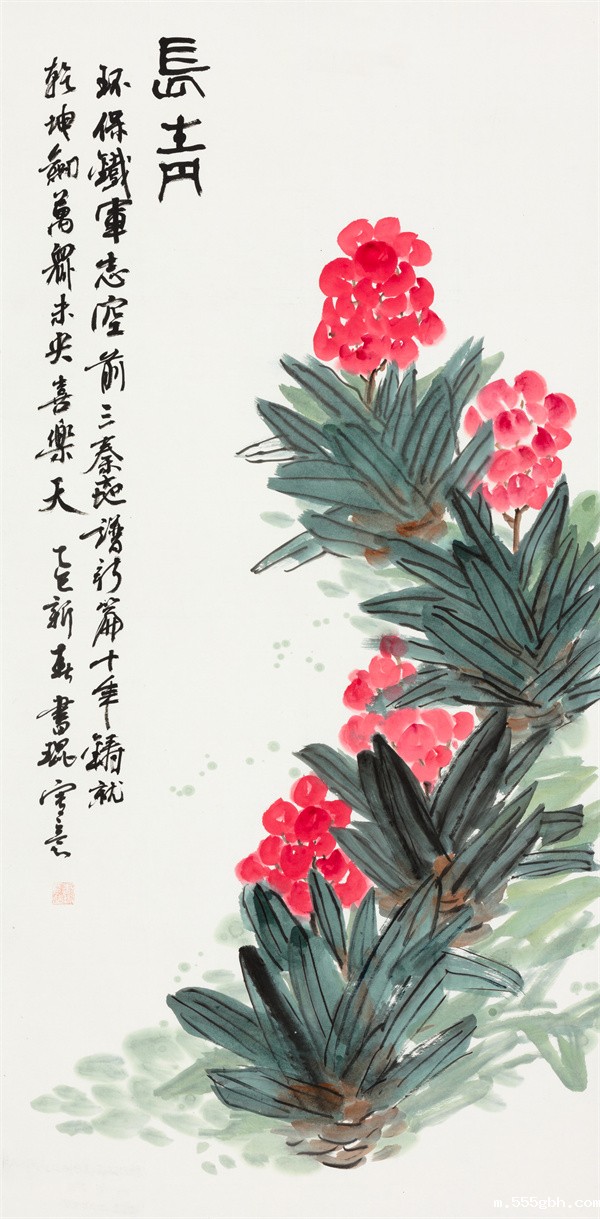 長青
环保鐵軍志空前三秦地譜新篇十年鑄就
乾坤劍萬眾未央喜樂天 乙巳新春書琨寫意
m.555gbh.com